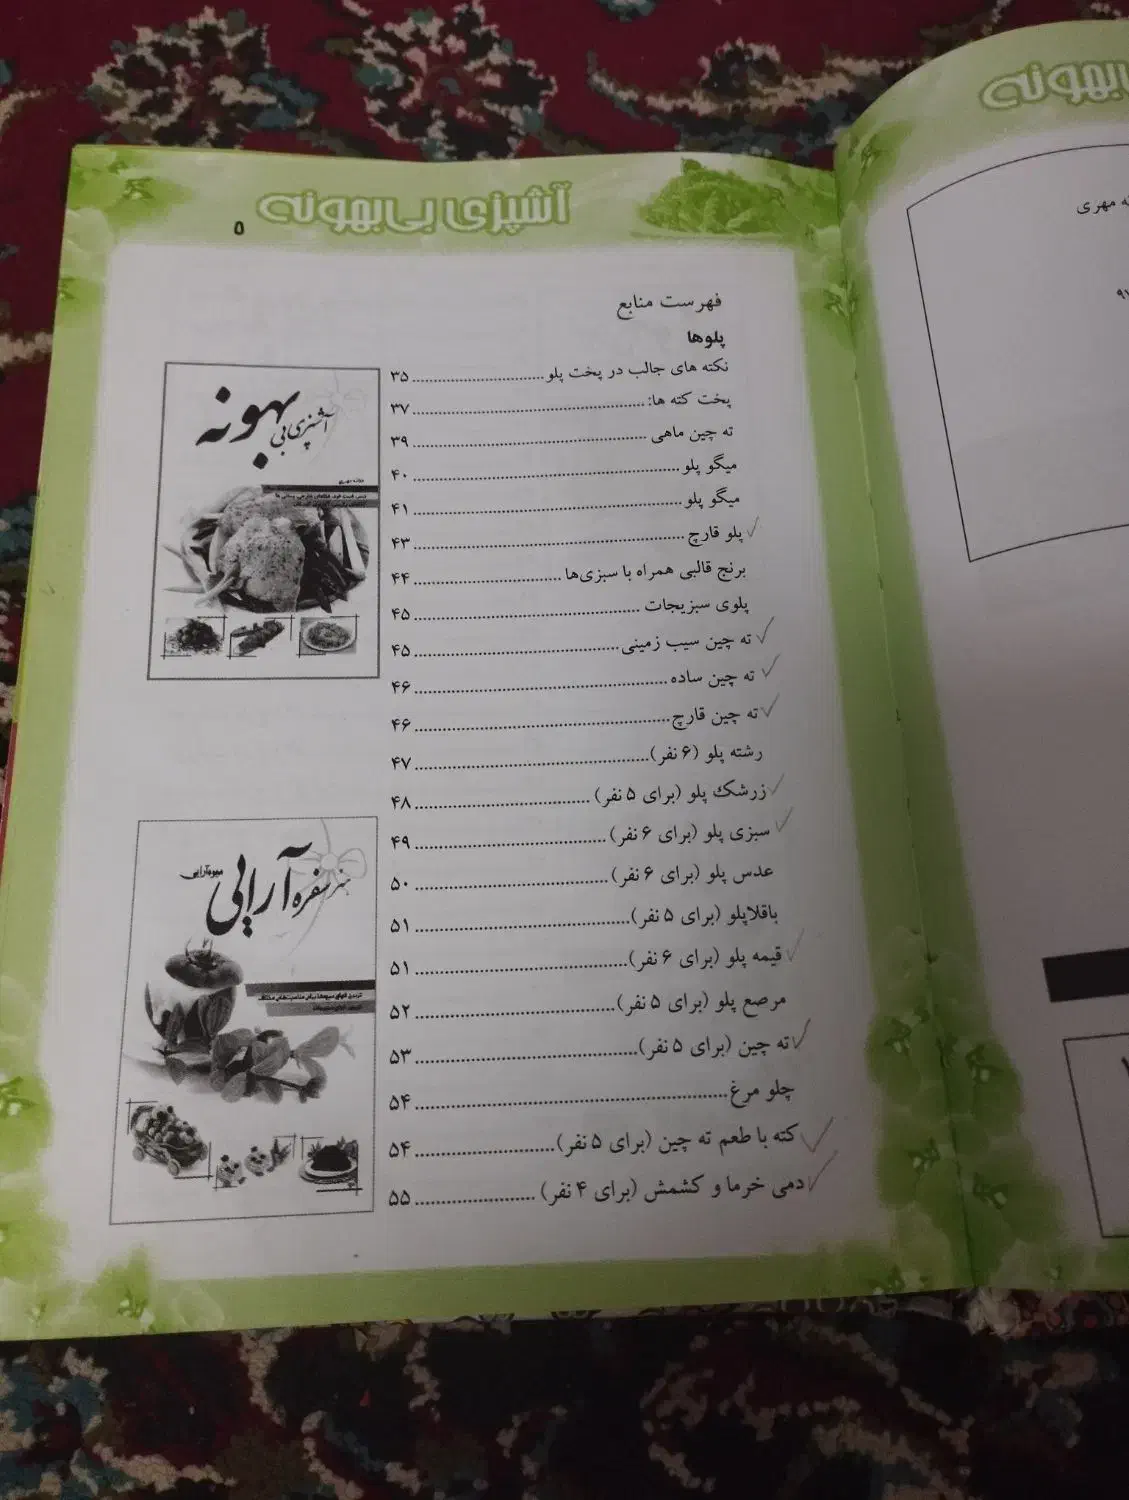 آشپزی بی‌بهونه
۵
فهرست منابع
پلوها
نکته های جالب در پخت پلو ............................... ۳۵
پخت کته ها: ............................... ۳۷
ته چین ماهی ............................... ۳۹
میگو پلو ............................... ۴۰
میگو پلو ............................... ۴۱
پلو قارچ ............................... ۴۳
برنج قالبی همراه با سبزی‌ها ............................... ۴۴
پلوی سبزیجات ............................... ۴۵
ته چین سیب زمینی ............................... ۴۵
ته چین ساده ............................... ۴۶
ته چین قارچ ............................... ۴۶
رشته پلو (۶ نفر) ............................... ۴۷
زرشک پلو (برای ۵ نفر) ............................... ۴۸
سبزی پلو (برای ۶ نفر) ............................... ۴۹
عدس پلو (برای ۶ نفر) ............................... ۵۰
باقلاپلو (برای ۵ نفر) ............................... ۵۱
قیمه پلو (برای ۶ نفر) ............................... ۵۱
مرصع پلو (برای ۵ نفر) ............................... ۵۲
ته چین (برای ۵ نفر) ............................... ۵۳
چلو مرغ ............................... ۵۴
کته با طعم ته چین (برای ۵ نفر) ............................... ۵۴
دمی خرما و کشمش (برای ۴ نفر) ............................... ۵۵
آشپزی بی بهونه
هنر سفره آرایی
میوه آرایی
مهری